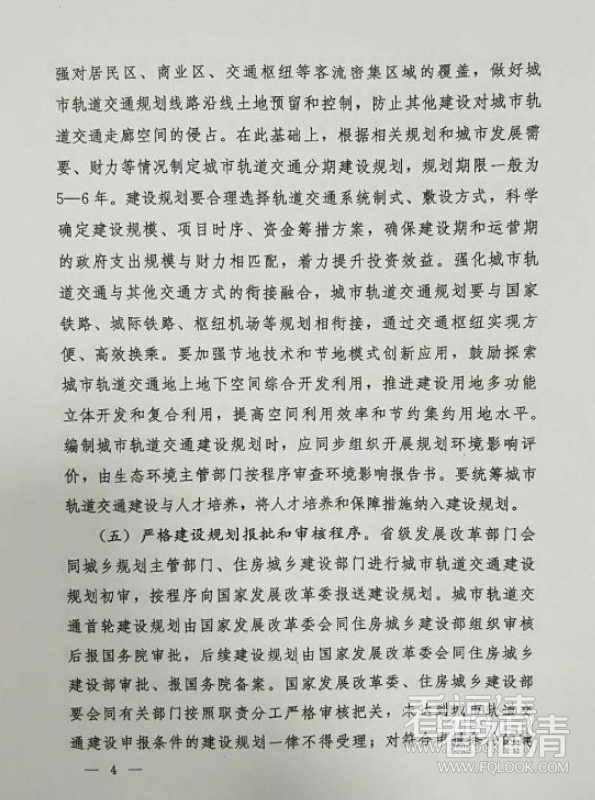 强对居民区、商业区、交通枢纽等客流密集区域的覆盖，做好城
市轨道交通规划线路沿线土地预留和控制，防止其他建设对城市轨
道交通走廊空间的侵占。在此基础上，根据相关规划和城市发展需
要、财力等情况制定城市轨道交通分期建设规划，规划期限一般为
5—6 年。建设规划要合理选择轨道交通系统制式、敷设方式，科学
确定建设规模、项目时序、资金筹措方案，确保建设期和运营期
的政府支出规模与财力相匹配，着力提升投资效益。强化城市轨
道交通与其他交通方式的衔接融合，城市轨道交通规划要与国家
铁路、城际铁路、枢纽机场等规划相衔接，通过交通枢纽实现方
便、高效换乘。要加强节地技术和节地模式创新应用，鼓励探索
城市轨道交通地上地下空间综合开发利用，推进建设用地多功能
立体开发和复合利用，提高空间利用效率和节约集约用地水平。
编制城市轨道交通建设规划时，应同步组织开展规划环境影响评
价，由生态环境主管部门按程序审查环境影响报告书。要统筹城市
轨道交通建设与人才培养，将人才培养和保障措施纳入建设规划。
（五）严格建设规划报批和审核程序。省级发展改革部门会
同城乡规划主管部门、住房城乡建设部门进行城市轨道交通建设
规划初审，按程序向国家发展改革委报送建设规划。城市轨道交
通首轮建设规划由国家发展改革委会同住房城乡建设部组织审核
后报国务院审批，后续建设规划由国家发展改革委会同住房城乡
建设部审批、报国务院备案。国家发展改革委、住房城乡建设部
要会同有关部门按照职责分工严格审核把关，未达到城市轨道交
通建设申报条件的建设规划一律不得受理；对符合申报条件的
— 4 —
看福清
WWW.FQLOOK.COM